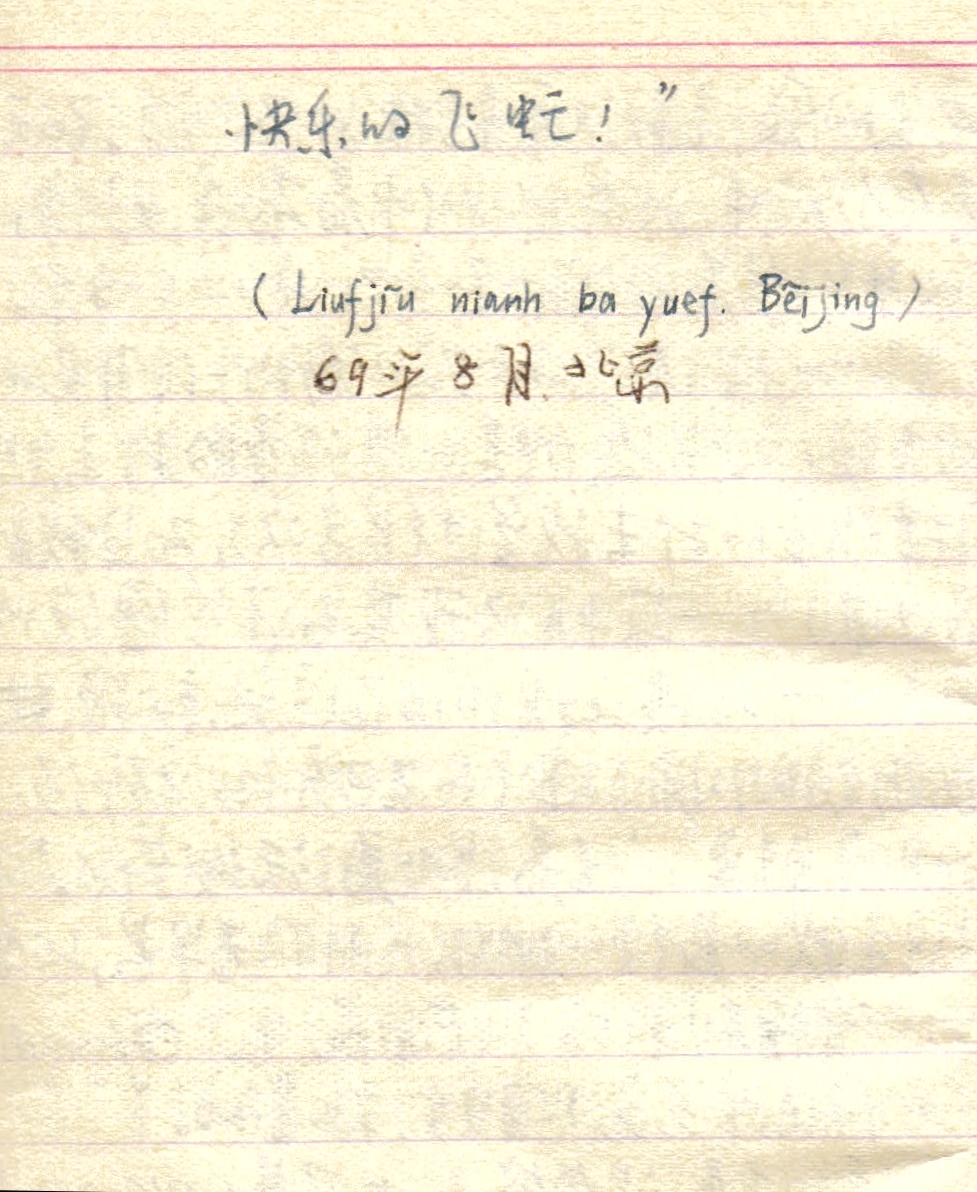 快乐的飞虻！”
(Liufjĭu nianh ba yuef. Bĕijing)
69年8月.北京